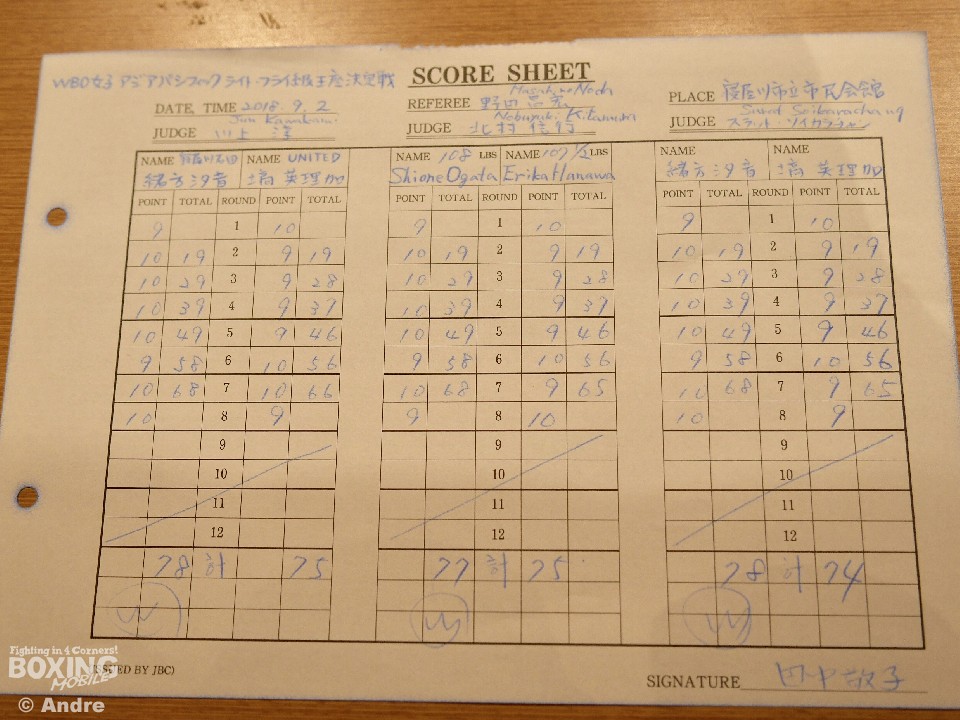 WBO女子 アジアパシフィック ライト・フライ級王座決定戦
SCORE SHEET
DATE, TIME 2018. 9. 2
REFEREE
PLACE 寝屋川市立市民会館
Jun Kawakami
Nobuyuki Kitamura
JUDGE 川上 淳
JUDGE 北村信行
JUDGE スラット・ソイカラチャン
NAME NAME UNITED
NAME 108 LBS NAME 107 1/2 LBS
NAME NAME
緒方汐音 塙 英理加
Shione Ogata Erika Hanawa
緒方汐音 塙 英理加
POINT TOTAL ROUND POINT TOTAL POINT TOTAL ROUND POINT TOTAL POINT TOTAL ROUND POINT TOTAL
9 1 10 9 1 10 9 1 10
10 19 2 9 19 10 19 2 9 19 10 19 2 9 19
10 29 3 9 28 10 29 3 9 28 10 29 3 9 28
10 39 4 9 37 10 39 4 9 37 10 39 4 9 37
10 49 5 9 46 10 49 5 9 46 10 49 5 9 46
9 58 6 10 56 9 58 6 10 56 9 58 6 10 56
10 68 7 10 66 10 68 7 9 65 10 68 7 9 65
10 8 9 9 8 10 10 8 9
9 9 9
10 10 10
11 11 11
12 12 12
78 計 75 77 計 75 78 計 74
W W W
ISSUED BY JBC)
SIGNATURE 田中敬子
Fighting in 4 Corners!
BOXING
MOBILE
© Andre